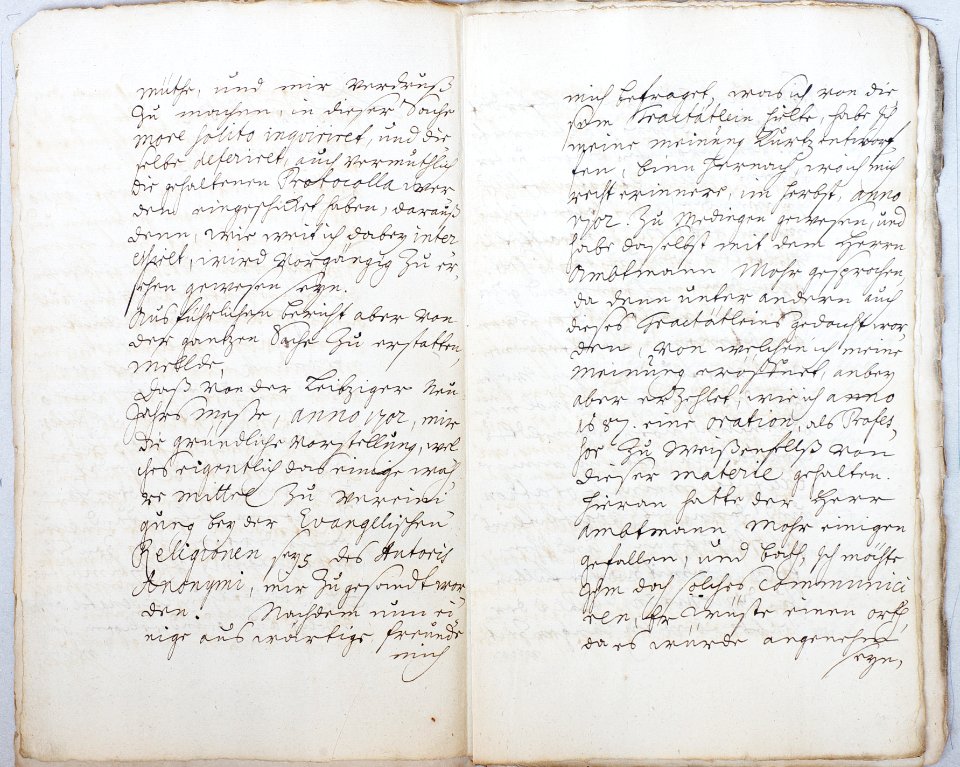 müthe, und mir Verdruß
zu machen, in dieser Sache
more solito inqviriret, und die
selbe deferiret, auch vermuthlich
die gehaltenen Protocolla wer
den eingeschicket haben, darauß
denn, wie weit ich dabey inter
essiret, wird Vorgängig zu er,
sehen gewesen seyn.
Außführlichen bericht aber von
der gantzen Sache zu erstatten,
melde,
Daß von der Leipziger Neu
Jahrs Messe, anno 1702, mir
die gründliche Vorstellung, wel
ches eigentlich das einige wah
re mittel zu Vereini
gung beyder Evangelischen
Religionen sey, des Autoris
Anonymi, mir zugesandt wor
den. Nachdem nun ei
nige auswärtige freunde
mich
mich befraget, was ich von die
sem Tractätlein hielte, habe ich
meine meinung kurtz entworf
fen, binn hernach, wo ich mich
recht erinnere, im herbst, anno
1702. zu Medingen gewesen, und
habe daselbst mit dem Herrn
Ambtmann Mohr gesprochen,
da denn unter andern auch
dieses Tractätleins gedacht wor
den, von welchen ich meine
Meinung eröffnet, anbey
aber erzehlet, wie ich anno
1687. eine oration, als Profes,
sor zu Weißenfelß von
dieser materie gehalten.
Hieran hatte der Herr
Ambtmann Mohr einigen
gefallen, und bath, ich möchte
Ihm doch solches communici
ren, Er wüste einen orth,
da es würde angenehm
seyn,